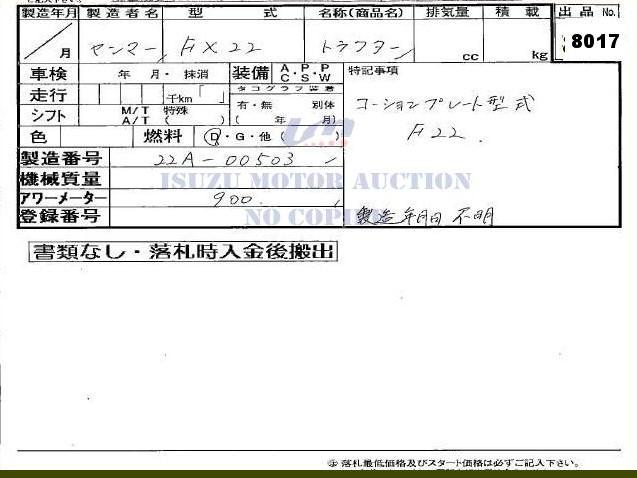 製造年月 製造者名 型式 名称(商品名) 排気量 積載 出品 No.
/ 月 ヤンマー FX22 トラクター cc kg 8017
車検 年 月・抹消 装備 A・P・P C・S・W 特記事項
走行 千km「 」 タコグラフ装着
有・無 別体 コーションプレート型式
シフト M/T 特殊 A/T ( ) ( 年 月) F22.
色 燃料 D・G・他 ( )
製造番号 22A-00503
機械質量 ISUZU MOTOR AUCTION
アワーメーター 900.
登録番号 NO COPIES 製造年月日 不明
書類なし・落札時入金後搬出
落札最低価格及びスタート価格は必ずご記入下さい。